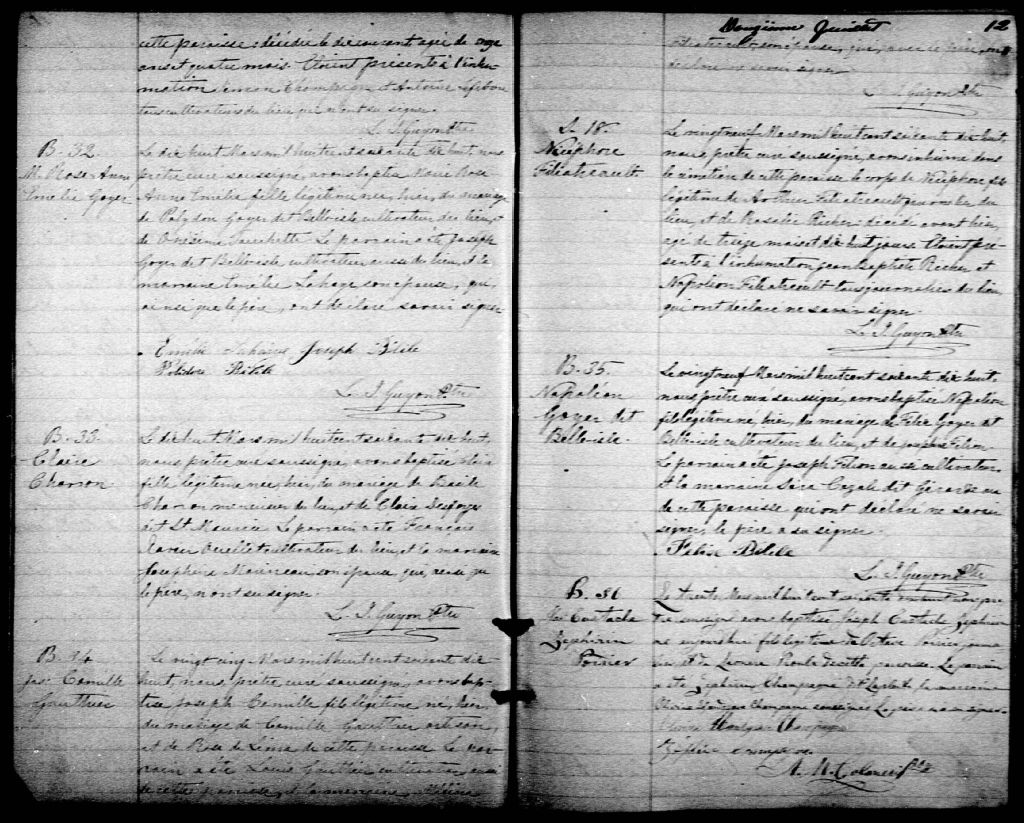 cette paroisse décédée le dix courant agée de onze
ans et quatre mois. Etoient présents à l'inhu-
mation Champagne et Antoine Lefebvre
tous cultivateurs du lieu qui n'ont su signer.
L. I. Guyon Ptre
B. 32.
M. Rose Anne
Emelie Goyer
Le dix huit Mars mil huit cent soixante dix huit, nous
prêtre curé soussigné, avons baptisé Marie Rose
Anne Emelie fille légitime née, hier, du mariage
de Polydor Goyer dit Belleisle cultivateur du lieu, et
de Onésime Le parrain a été Joseph
Goyer dit Belleisle, cultivateur aussi du lieu, et la
marraine Emelie son épouse, qui,
ainsi que le père, ont déclaré savoir signer.
Emélie Joseph Bélile
Polidore Bélile
L. I. Guyon Ptre
B. 33.
Claire
Charron
Le dix huit Mars mil huit cent soixante dix huit,
nous prêtre curé soussigné, avons baptisé Claire
fille légitime née, hier, du mariage de Basile
Charron menuisier du lieu, et de Claire Desforges
dit St Maurice. Le parrain a été François
Xavier Ouellette cultivateur du lieu, et la marraine
Josephine son épouse, qui, ainsi que
le père, n'ont su signer.
L. I. Guyon Ptre
B. 34
Jos. Camille
Gauthier
Le vingt cinq Mars mil huit cent soixante dix
huit, nous prêtre curé soussigné, avons bap-
tisé Joseph Camille fils légitime né, hier,
du mariage de Camille Gauthier artisan,
et de Rose de Lima de cette paroisse Le par-
rain a été Louis Gauthier cultivateur aussi
de cette paroisse, et la marraine, Mélina
Douzième feuillet
12
Filiatreault son épouse, qui, avec le père, ont
déclaré ne savoir signer
L. I. Guyon Ptre
S. 18.
Nicéphore
Filiatreault
Le vingt neuf Mars mil huit cent soixante dix huit,
nous prêtre curé soussigné, avons inhumé dans
le cimetière de cette paroisse le corps de Nicéphore fils
légitime de Arthur Filiatreault journalier du
lieu, et de Rosalie Richer décédé avant hier,
agé de treize mois et dix huit jours. Etoient pré-
sents à l'inhumation Jean Baptiste Richer et
Napoléon Filiatreault tous journaliers du lieu,
qui ont déclaré ne savoir signer.
L. I. Guyon Ptre
B. 35.
Napoléon
Goyer dit
Belleisle.
Le vingt neuf Mars mil huit cent soixante dix huit,
nous prêtre curé soussigné, avons baptisé Napoléon
fils légitime né, hier, du mariage de Félix Goyer dit
Belleisle cultivateur du lieu, et de Josephte Filion.
Le parrain a été Joseph Filion aussi cultivateur,
et la marraine
de cette paroisse qui ont déclaré ne savoir
signer, le père a su signer.
Félix Bélile
L. I. Guyon Ptre
B. 36
Jos. Eustache
Zephirin
Poirier
Le trente Mars mil huit cent soixante dix huit nous prê-
tre soussigné avons baptisé Joseph Eustache Zephirin
né aujourd'hui fils légitime de Octave Poirier journa-
lier et de de cette paroisse. Le parrain
a été Zephirin Champagne et la marraine
Champagne soussignés. Le père n'a su signer.
Champagne
A. M. Ptre